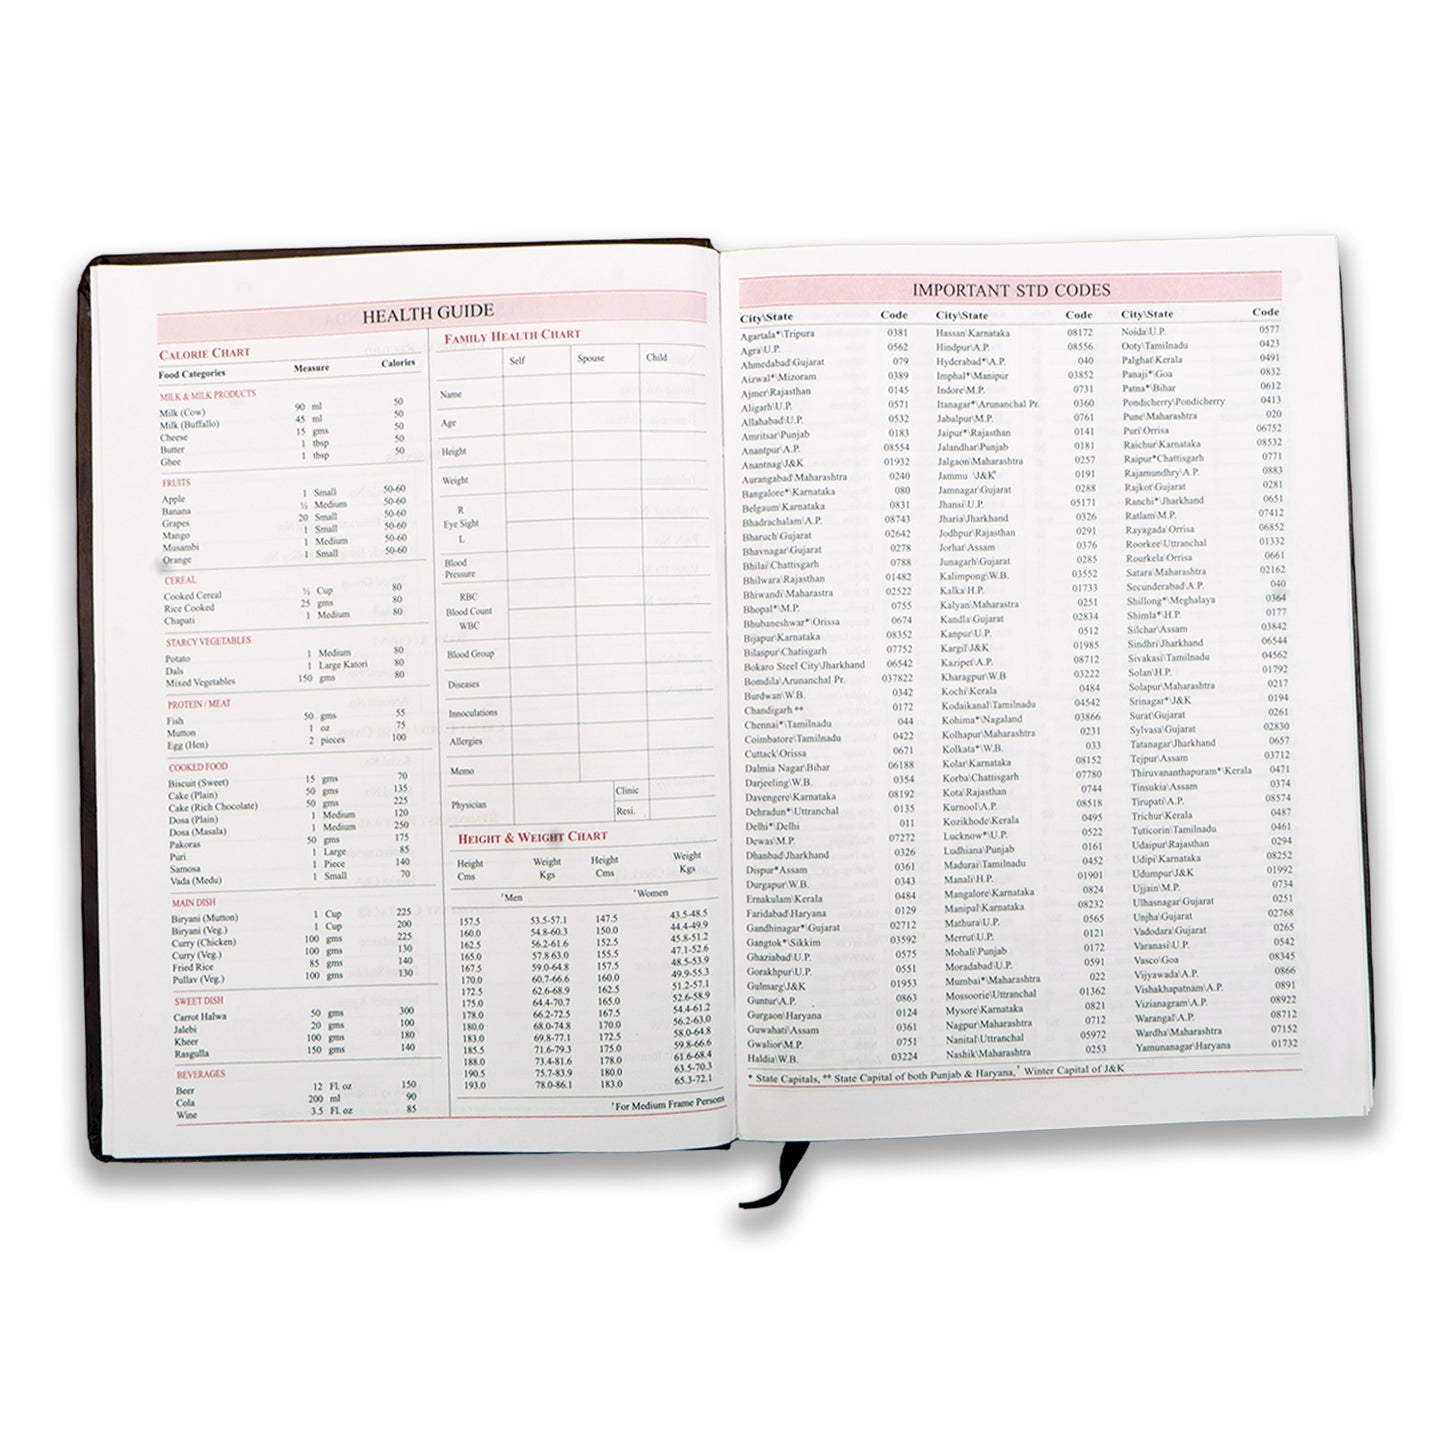 HEALTH GUIDE
CALORIE CHART
Food Categories Measure Calories
MILK & MILK PRODUCTS
Milk (Cow) 90 ml 50
Milk (Buffallo) 45 ml 50
Cheese 15 gms 50
Butter 1 tbsp 50
Ghee 1 tbsp 50
FRUITS
Apple 1 Small 50-60
Banana ½ Medium 50-60
Grapes 20 Small 50-60
Mango 1 Small 50-60
Musambi 1 Medium 50-60
Orange 1 Small 50-60
CEREAL
Cooked Cereal ½ Cup 80
Rice Cooked 25 gms 80
Chapati 1 Medium 80
STARCY VEGETABLES
Potato 1 Medium 80
Dals 1 Large Katori 80
Mixed Vegetables 150 gms 80
PROTEIN / MEAT
Fish 50 gms 55
Mutton 1 oz 75
Egg (Hen) 2 pieces 100
COOKED FOOD
Biscuit (Sweet) 15 gms 70
Cake (Plain) 50 gms 135
Cake (Rich Chocolate) 50 gms 225
Dosa (Plain) 1 Medium 120
Dosa (Masala) 1 Medium 250
Pakoras 50 gms 175
Puri 1 Large 85
Samosa 1 Piece 140
Vada (Medu) 1 Small 70
MAIN DISH
Biryani (Mutton) 1 Cup 225
Biryani (Veg.) 1 Cup 200
Curry (Chicken) 100 gms 225
Curry (Veg.) 100 gms 130
Fried Rice 85 gms 140
Pullav (Veg.) 100 gms 130
SWEET DISH
Carrot Halwa 50 gms 300
Jalebi 20 gms 100
Kheer 100 gms 180
Rasgulla 150 gms 140
BEVERAGES
Beer 12 Fl. oz 150
Cola 200 ml 90
Wine 3.5 Fl. oz 85
FAMILY HEALTH CHART
Self Spouse Child
Name
Age
Height
Weight
R
Eye Sight
L
Blood
Pressure
RBC
Blood Count
WBC
Blood Group
Diseases
Innoculations
Allergies
Memo
Physician Clinic
Resi.
HEIGHT & WEIGHT CHART
Height Weight Height Weight
Cms Kgs Cms Kgs
†Men †Women
157.5 53.5-57.1 147.5 43.5-48.5
160.0 54.8-60.3 150.0 44.4-49.9
162.5 56.2-61.6 152.5 45.8-51.2
165.0 57.8 63.0 155.5 47.1-52.6
167.5 59.0-64.8 157.5 48.5-53.9
170.0 60.7-66.6 160.0 49.9-55.3
172.5 62.6-68.9 162.5 51.2-57.1
175.0 64.4-70.7 165.0 52.6-58.9
178.0 66.2-72.5 167.5 54.4-61.2
180.0 68.0-74.8 170.0 56.2-63.0
183.0 69.8-77.1 172.5 58.0-64.8
185.5 71.6-79.3 175.0 59.8-66.6
188.0 73.4-81.6 178.0 61.6-68.4
190.5 75.7-83.9 180.0 63.5-70.3
193.0 78.0-86.1 183.0 65.3-72.1
†For Medium Frame Persons
IMPORTANT STD CODES
City\State Code City\State Code City\State Code
Agartala*\Tripura 0381 Hassan\Karnataka 08172 Noida\U.P. 0577
Agra\U.P. 0562 Hindpur\A.P. 08556 Ooty\Tamilnadu 0423
Ahmedabad\Gujarat 079 Hyderabad*\A.P. 040 Palghat\Kerala 0491
Aizwal*\Mizoram 0389 Imphal*\Manipur 03852 Panaji*\Goa 0832
Ajmer\Rajasthan 0145 Indore\M.P. 0731 Patna*\Bihar 0612
Aligarh\U.P. 0571 Itanagar*\Arunanchal Pr. 0360 Pondicherry\Pondicherry 0413
Allahabad\U.P. 0532 Jabalpur\M.P. 0761 Pune\Maharashtra 020
Amritsar\Punjab 0183 Jaipur*\Rajasthan 0141 Puri\Orrisa 06752
Anantpur\A.P. 08554 Jalandhar\Punjab 0181 Raichur\Karnataka 08532
Anantnag\J&K 01932 Jalgaon\Maharashtra 0257 Raipur*\Chattisgarh 0771
Aurangabad\Maharashtra 0240 Jammu \J&K† 0191 Rajamundhry\A.P. 0883
Bangalore*\Karnataka 080 Jamnagar\Gujarat 0288 Rajkot\Gujarat 0281
Belgaum\Karnataka 0831 Jhansi\U.P. 05171 Ranchi*\Jharkhand 0651
Bhadrachalam\A.P. 08743 Jharia\Jharkhand 0326 Ratlam\M.P. 07412
Bharuch\Gujarat 02642 Jodhpur\Rajasthan 0291 Rayagada\Orrisa 06852
Bhavnagar\Gujarat 0278 Jorhat\Assam 0376 Roorkee\Uttranchal 01332
Bhilai\Chattisgarh 0788 Junagarh\Gujarat 0285 Rourkela\Orrisa 0661
Bhilwara\Rajasthan 01482 Kalimpong\W.B. 03552 Satara\Maharashtra 02162
Bhiwandi\Maharastra 02522 Kalka\H.P. 01733 Secunderabad\A.P. 040
Bhopal*\M.P. 0755 Kalyan\Maharastra 0251 Shillong*\Meghalaya 0364
Bhubaneshwar*\Orissa 0674 Kandla\Gujarat 02834 Shimla*\H.P. 0177
Bijapur\Karnataka 08352 Kanpur\U.P. 0512 Silchar\Assam 03842
Bilaspur\Chatisgarh 07752 Kargil\J&K 01985 Sindhri\Jharkhand 06544
Bokaro Steel City\Jharkhand 06542 Kazipet\A.P. 08712 Sivakasi\Tamilnadu 04562
Bomdila\Arunanchal Pr. 037822 Kharagpur\W.B 03222 Solan\H.P. 01792
Burdwan\W.B. 0342 Kochi\Kerala 0484 Solapur\Maharashtra 0217
Chandigarh ** 0172 Kodaikanal\Tamilnadu 04542 Srinagar*\J&K 0194
Chennai*\Tamilnadu 044 Kohima*\Nagaland 03866 Surat\Gujarat 0261
Coimbatore\Tamilnadu 0422 Kolhapur\Maharashtra 0231 Sylvasa\Gujarat 02830
Cuttack\Orissa 0671 Kolkata*\W.B. 033 Tatanagar\Jharkhand 0657
Dalmia Nagar\Bihar 06188 Kolar\Karnataka 08152 Tejpur\Assam 03712
Darjeeling\W.B. 0354 Korba\Chattisgarh 07780 Thiruvananthapuram*\Kerala 0471
Davengere\Karnataka 08192 Kota\Rajasthan 0744 Tinsukia\Assam 0374
Dehradun*\Uttranchal 0135 Kurnool\A.P. 08518 Tirupati\A.P. 08574
Delhi*\Delhi 011 Kozikhode\Kerala 0495 Trichur\Kerala 0487
Dewas\M.P. 07272 Lucknow*\U.P. 0522 Tuticorin\Tamilnadu 0461
Dhanbad\Jharkhand 0326 Ludhiana\Punjab 0161 Udaipur\Rajasthan 0294
Dispur*\Assam 0361 Madurai\Tamilnadu 0452 Udipi\Karnataka 08252
Durgapur\W.B. 0343 Manali\H.P. 01901 Udumpur\J&K 01992
Ernakulam\Kerala 0484 Mangalore\Karnataka 0824 Ujjain\M.P. 0734
Faridabad\Haryana 0129 Manipal\Karnataka 08232 Ulhasnagar\Gujarat 0251
Gandhinagar*\Gujarat 02712 Mathura\U.P. 0565 Unjha\Gujarat 02768
Gangtok*\Sikkim 03592 Merrut\U.P. 0121 Vadodara\Gujarat 0265
Ghaziabad\U.P. 0575 Mohali\Punjab 0172 Varanasi\U.P. 0542
Gorakhpur\U.P. 0551 Moradabad\U.P. 0591 Vasco\Goa 08345
Gulmarg\J&K 01953 Mumbai*\Maharashtra 022 Vijyawada\A.P. 0866
Guntur\A.P. 0863 Mossoorie\Uttranchal 01362 Vishakhapatnam\A.P. 0891
Gurgaon\Haryana 0124 Mysore\Karnataka 0821 Vizianagram\A.P. 08922
Guwahati\Assam 0361 Nagpur\Maharashtra 0712 Warangal\A.P. 08712
Gwalior\M.P. 0751 Nanital\Uttranchal 05972 Wardha\Maharashtra 07152
Haldia\W.B. 03224 Nashik\Maharashtra 0253 Yamunanagar\Haryana 01732
* State Capitals, ** State Capital of both Punjab & Haryana, † Winter Capital of J&K